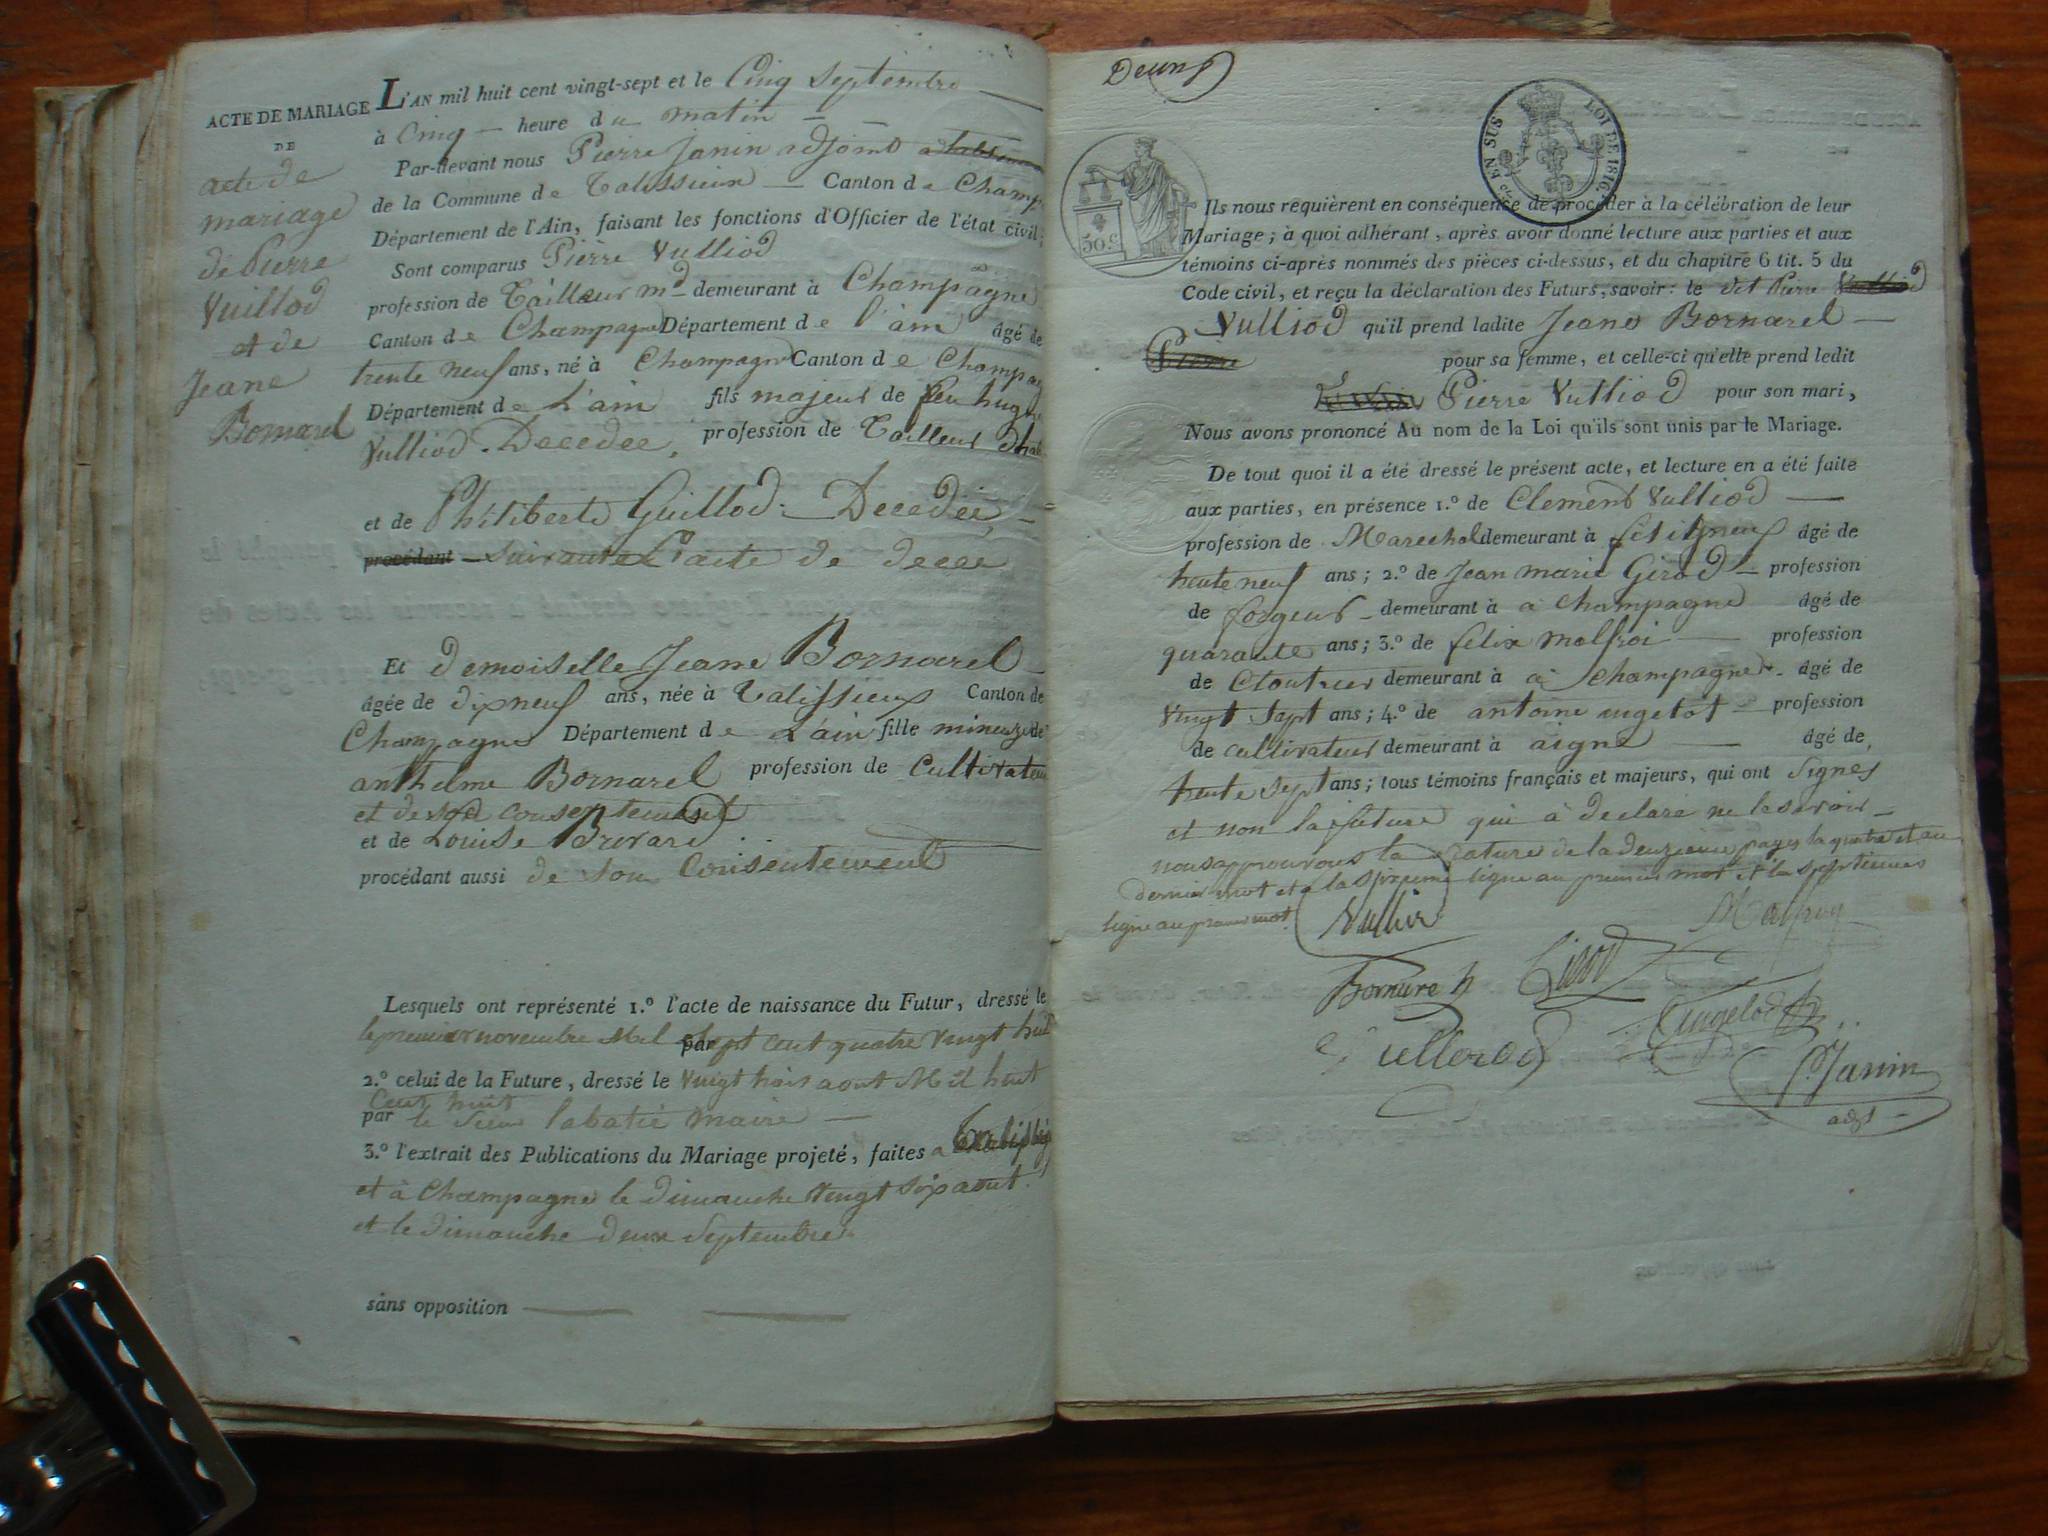 ACTE DE MARIAGE
DE
acte de
mariage
de Pierre
Vuillod
et de
Jeane
Bornarel
L'AN mil huit cent vingt-sept et le Cinq Septembre
à Cinq heure du matin
Par-devant nous Pierre Janin adjoint
de la Commune de Talissieux Canton de Champ
Département de l'Ain, faisant les fonctions d'Officier de l'état civil;
Sont comparus Pierre Vulliod
profession de Tailleur md demeurant à Champagne
Canton de Champagne Département de l'ain âgé de
trente neuf ans, né à Champagne Canton de Champag
Département de L'ain fils majeur de feu hugue
Vulliod Decedee, profession de Tailleur dhab
et de Philiberte Guillod Decedée
procédant Suivante L'acte de decee
Et demoiselle Jeane Bornarel
âgée de dixneuf ans, née à Talissieux Canton de
Champagne Département de L'ain fille mineure de
anthelme Bornarel profession de Cultivateur
et de son consentement
et de Louise Brivard
procédant aussi de son Consentement
Lesquels ont représenté 1.º l'acte de naissance du Futur, dressé le
le premier novembre Mil sept cent quatre vingt huit
par
2.º celui de la Future, dressé le vingt trois aout Mil huit
Cent huit
par le Sieur labatie maire
3.º l'extrait des Publications du Mariage projeté, faites a
et à Champagne le dimanche vingt six aout
et le dimanche deux Septembre
sans opposition
Deux
50.c
EN SUS
LOI DE 1816.
Ils nous requièrent en conséquence de procéder à la célébration de leur
Mariage; à quoi adhérant, après avoir donné lecture aux parties et aux
témoins ci-après nommés des pièces ci-dessus, et du chapitre 6 tit. 5 du
Code civil, et reçu la déclaration des Futurs, savoir: le dit Pierre Vulliod
Vulliod qu'il prend ladite Jeane Bornarel
Pierre pour sa femme, et celle-ci qu'elle prend ledit
Pierre Vulliod pour son mari,
Nous avons prononcé Au nom de la Loi qu'ils sont unis par le Mariage.
De tout quoi il a été dressé le présent acte, et lecture en a été faite
aux parties, en présence 1.º de Clement Vulliod
profession de Marechal demeurant à fitigneux âgé de
trente neuf ans; 2.º de Jean marie Girod profession
de forgeur demeurant à à Champagne âgé de
quarante ans; 3.º de felix molfroi profession
de Cloutier demeurant à à Champagne âgé de
vingt sept ans; 4.º de antoine ugelot profession
de cultivateur demeurant à aigne âgé de
trente sept ans; tous témoins français et majeurs, qui ont Signes
et non la future qui à declare ne le savoir
nous approuvons la rature de la deuzieme pages la quatre et au
dernier mot et a la sixieme ligne au premier mot et la septiemes
ligne au premier mot
Vullier
Girod
P. Janin
adjt